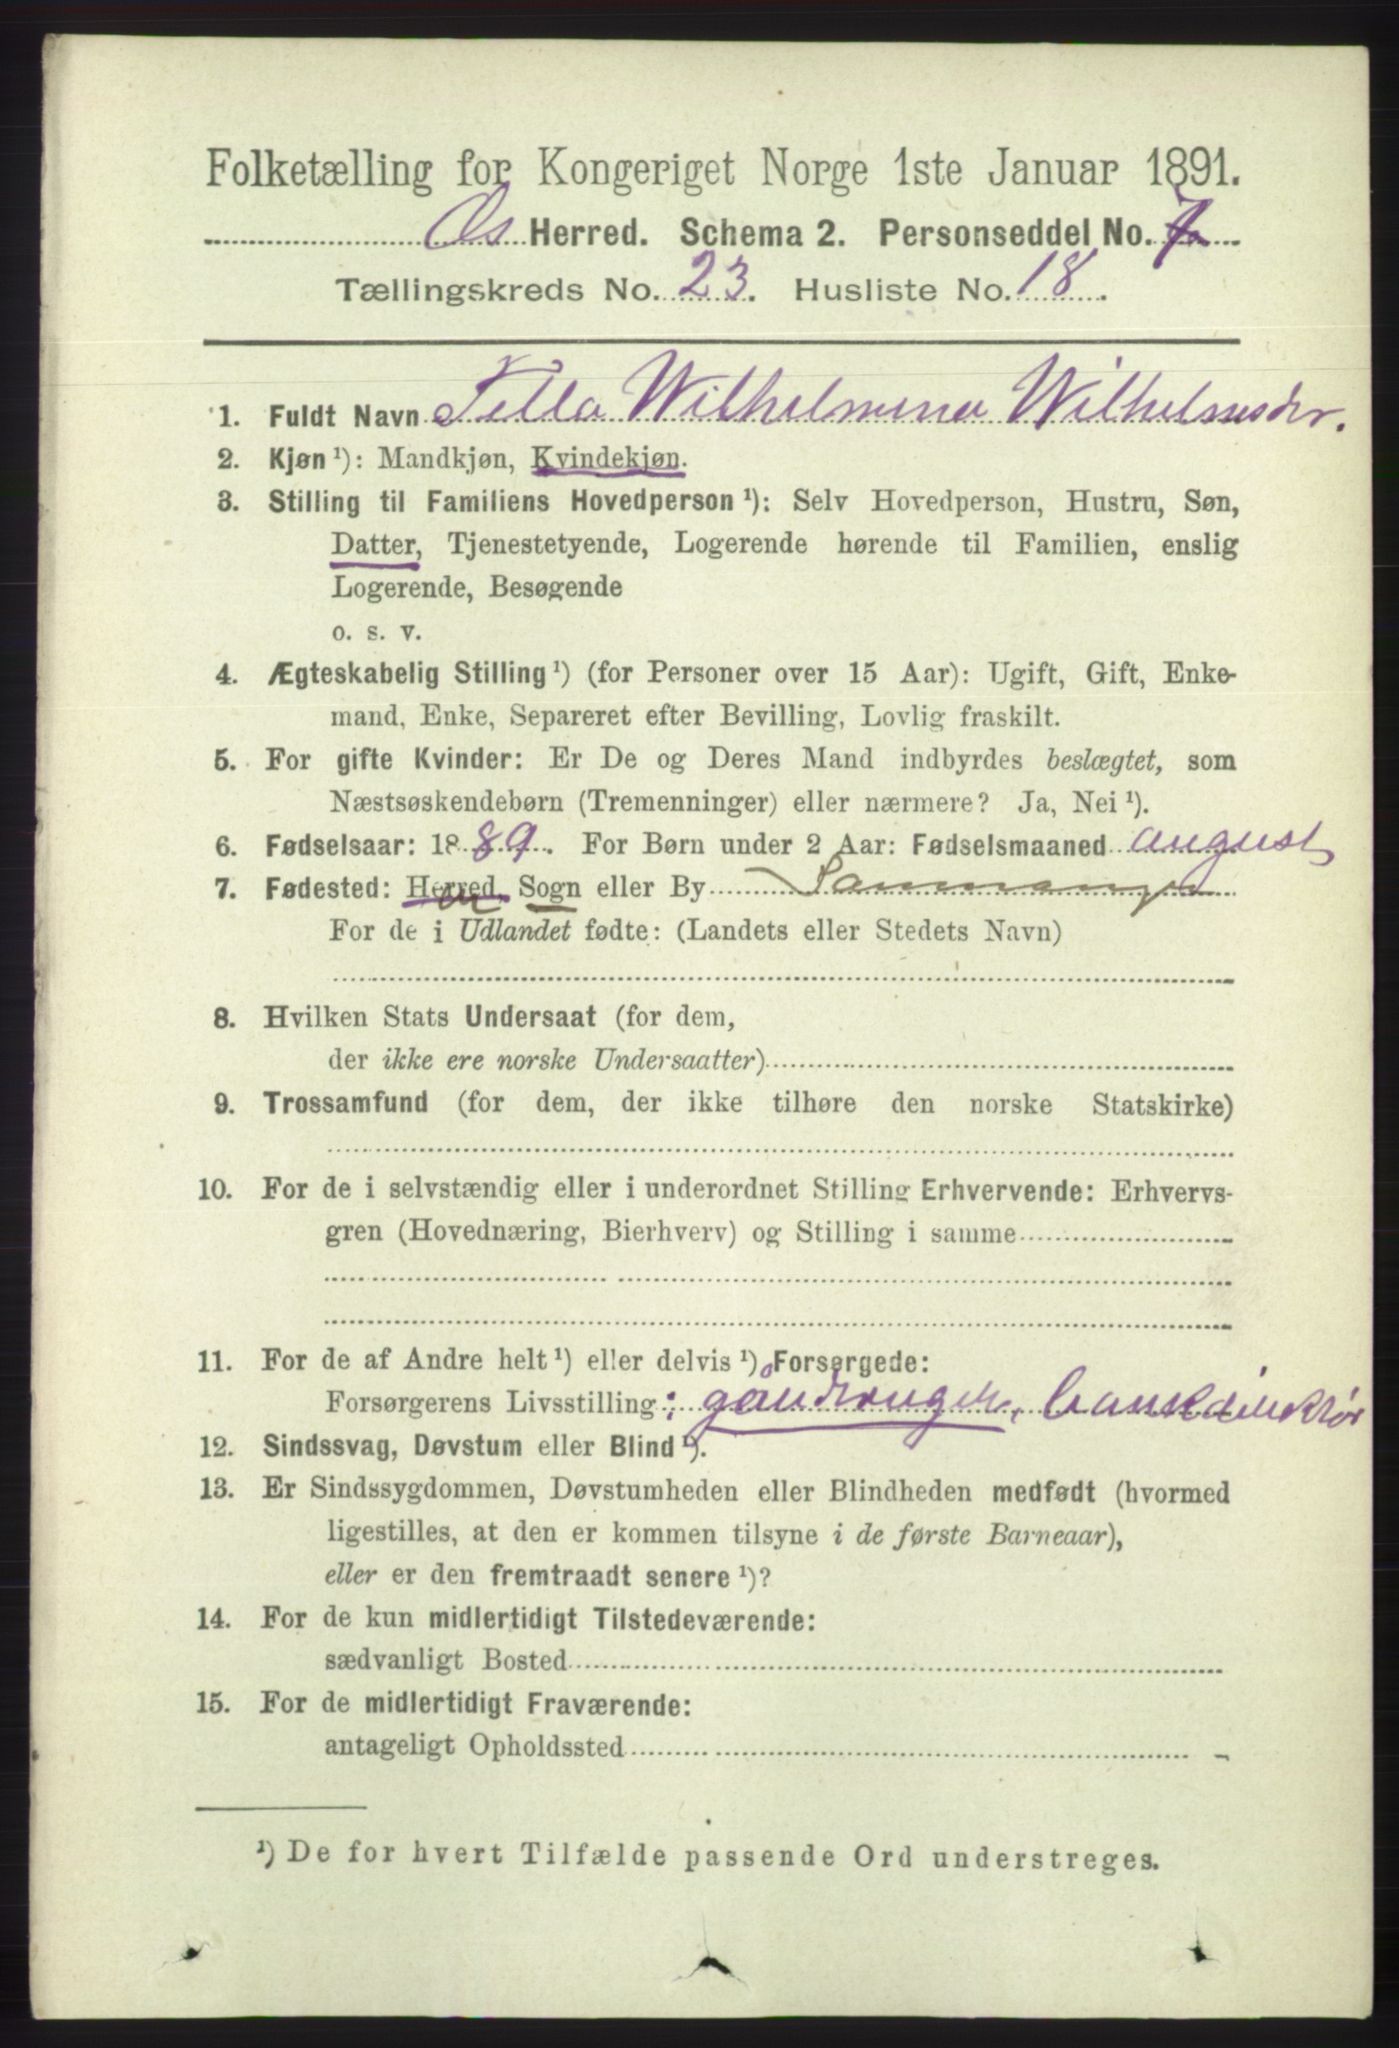 Folketælling for Kongeriget Norge 1ste Januar 1891.
Os Herred. Schema 2. Personseddel No. 7
Tællingskreds No. 23. Husliste No. 18.
1. Fuldt Navn Tella Wilhelmina Wilhelmsdr.
2. Kjøn ¹): Mandkjøn, Kvindekjøn.
3. Stilling til Familiens Hovedperson ¹): Selv Hovedperson, Hustru, Søn,
Datter, Tjenestetyende, Logerende hørende til Familien, enslig
Logerende, Besøgende
o. s. v.
4. Ægteskabelig Stilling ¹) (for Personer over 15 Aar): Ugift, Gift, Enke-
mand, Enke, Separeret efter Bevilling, Lovlig fraskilt.
5. For gifte Kvinder: Er De og Deres Mand indbyrdes beslægtet, som
Næstsøskendebørn (Tremenninger) eller nærmere? Ja, Nei ¹).
6. Fødselsaar: 1889. For Børn under 2 Aar: Fødselsmaaned august
7. Fødested: Herred, Sogn eller By Sammanger
For de i Udlandet fødte: (Landets eller Stedets Navn)
8. Hvilken Stats Undersaat (for dem,
der ikke ere norske Undersaatter)
9. Trossamfund (for dem, der ikke tilhøre den norske Statskirke)
10. For de i selvstændig eller i underordnet Stilling Erhvervende: Erhvervs-
gren (Hovednæring, Bierhverv) og Stilling i samme
11. For de af Andre helt ¹) eller delvis ¹) Forsørgede:
Forsørgerens Livsstilling: gaardbruger,
12. Sindssvag, Døvstum eller Blind ¹).
13. Er Sindssygdommen, Døvstumheden eller Blindheden medfødt (hvormed
ligestilles, at den er kommen tilsyne i de første Barneaar),
eller er den fremtraadt senere ¹)?
14. For de kun midlertidigt Tilstedeværende:
sædvanligt Bosted
15. For de midlertidigt Fraværende:
antageligt Opholdssted
¹) De for hvert Tilfælde passende Ord understreges.